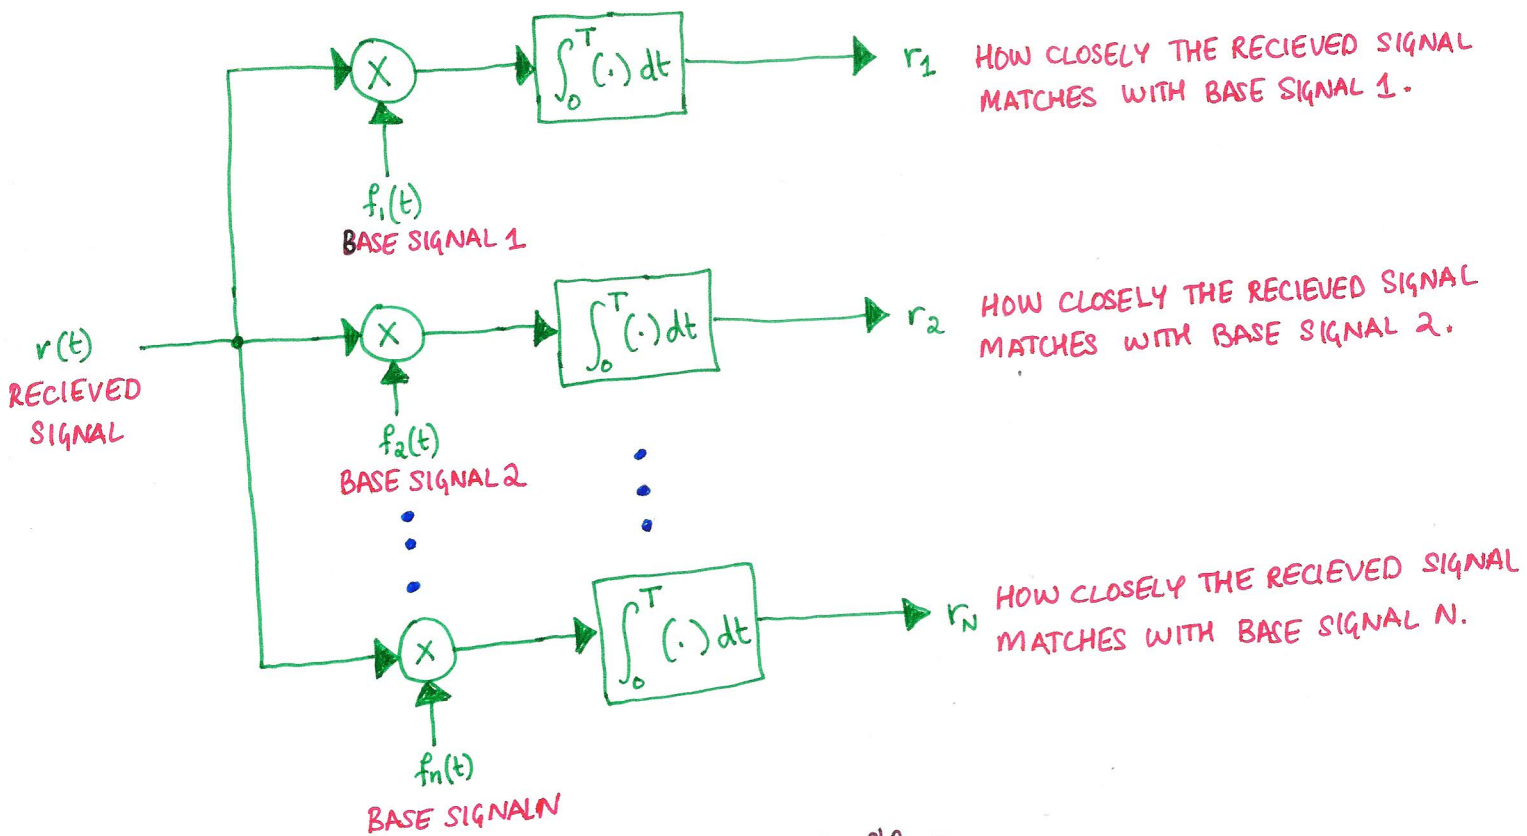 ∫₀ᵀ (·) dt
X
r₁
HOW CLOSELY THE RECIEVED SIGNAL
MATCHES WITH BASE SIGNAL 1.
f₁(t)
BASE SIGNAL 1
r(t)
RECIEVED
SIGNAL
X
∫₀ᵀ (·) dt
r₂
HOW CLOSELY THE RECIEVED SIGNAL
MATCHES WITH BASE SIGNAL 2.
f₂(t)
BASE SIGNAL 2
X
∫₀ᵀ (·) dt
r_N
HOW CLOSELY THE RECIEVED SIGNAL
MATCHES WITH BASE SIGNAL N.
fₙ(t)
BASE SIGNAL N